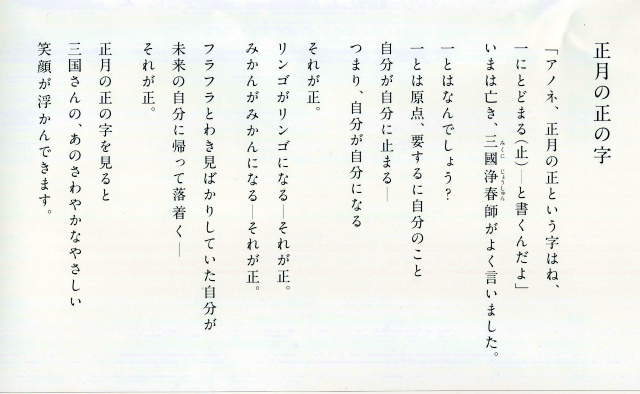 正月の正の字
「アノネ、正月の正という字はね、
一にとどまる（止）―と書くんだよ」
いまは亡き、三國浄春師がよく言いました。
みくに じょうしゅん
一とはなんでしょう？
一とは原点、要するに自分のこと
自分が自分に止まる―
つまり、自分が自分になる
それが正。
リンゴがリンゴになる―それが正。
みかんがみかんになる―それが正。
フラフラとわき見ばかりしていた自分が
未来の自分に帰って落着く―
それが正。
正月の正の字を見ると
三国さんの、あのさわやかなやさしい
笑顔が浮かんできます。